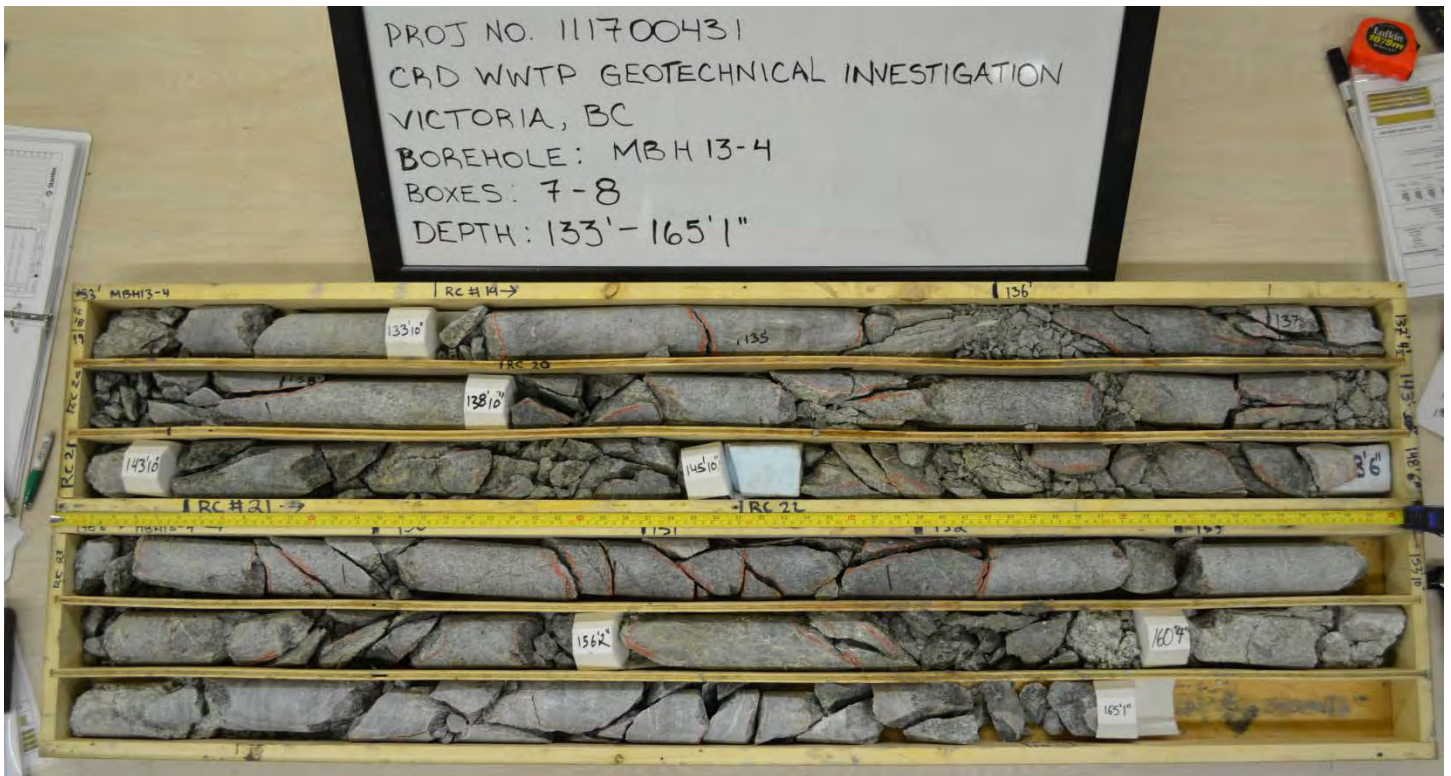 PROJ NO. 111700431
CRD WWTP GEOTECHNICAL INVESTIGATION
VICTORIA, BC
BOREHOLE: MBH 13-4
BOXES: 7-8
DEPTH: 133'-165'1"
Lufkin
Stantec
133' MBH13-4
RC #19→
136'
19
133'10"
135
137
137' 4½"
RC 20
RC 20
138'10"
143'
RC 21
143'10"
145'10"
6"
148'6"
RC #21 →
RC 22
151
152
RC 23
153'10
156'2"
160'4"
165'1"